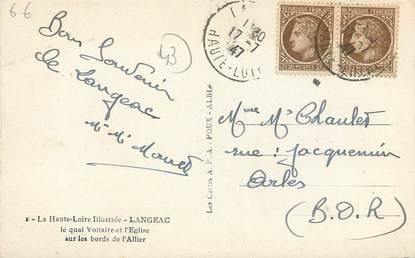 66
43
Bon Souvenir
de Langeac
HAUTE-LOIRE
17-7
47
RÉPUBLIQUE FRANÇAISE
RÉPUBLIQUE FRANÇAISE
POSTES
Mme Mr Chaulet
rue : Jacquemin
Arles
(B.D.R)
Les Cartes A. P. A. POUX - ALBI
1 - La Haute-Loire Illustrée - LANGEAC
le quai Voltaire et l'Eglise
sur les bords de l'Allier